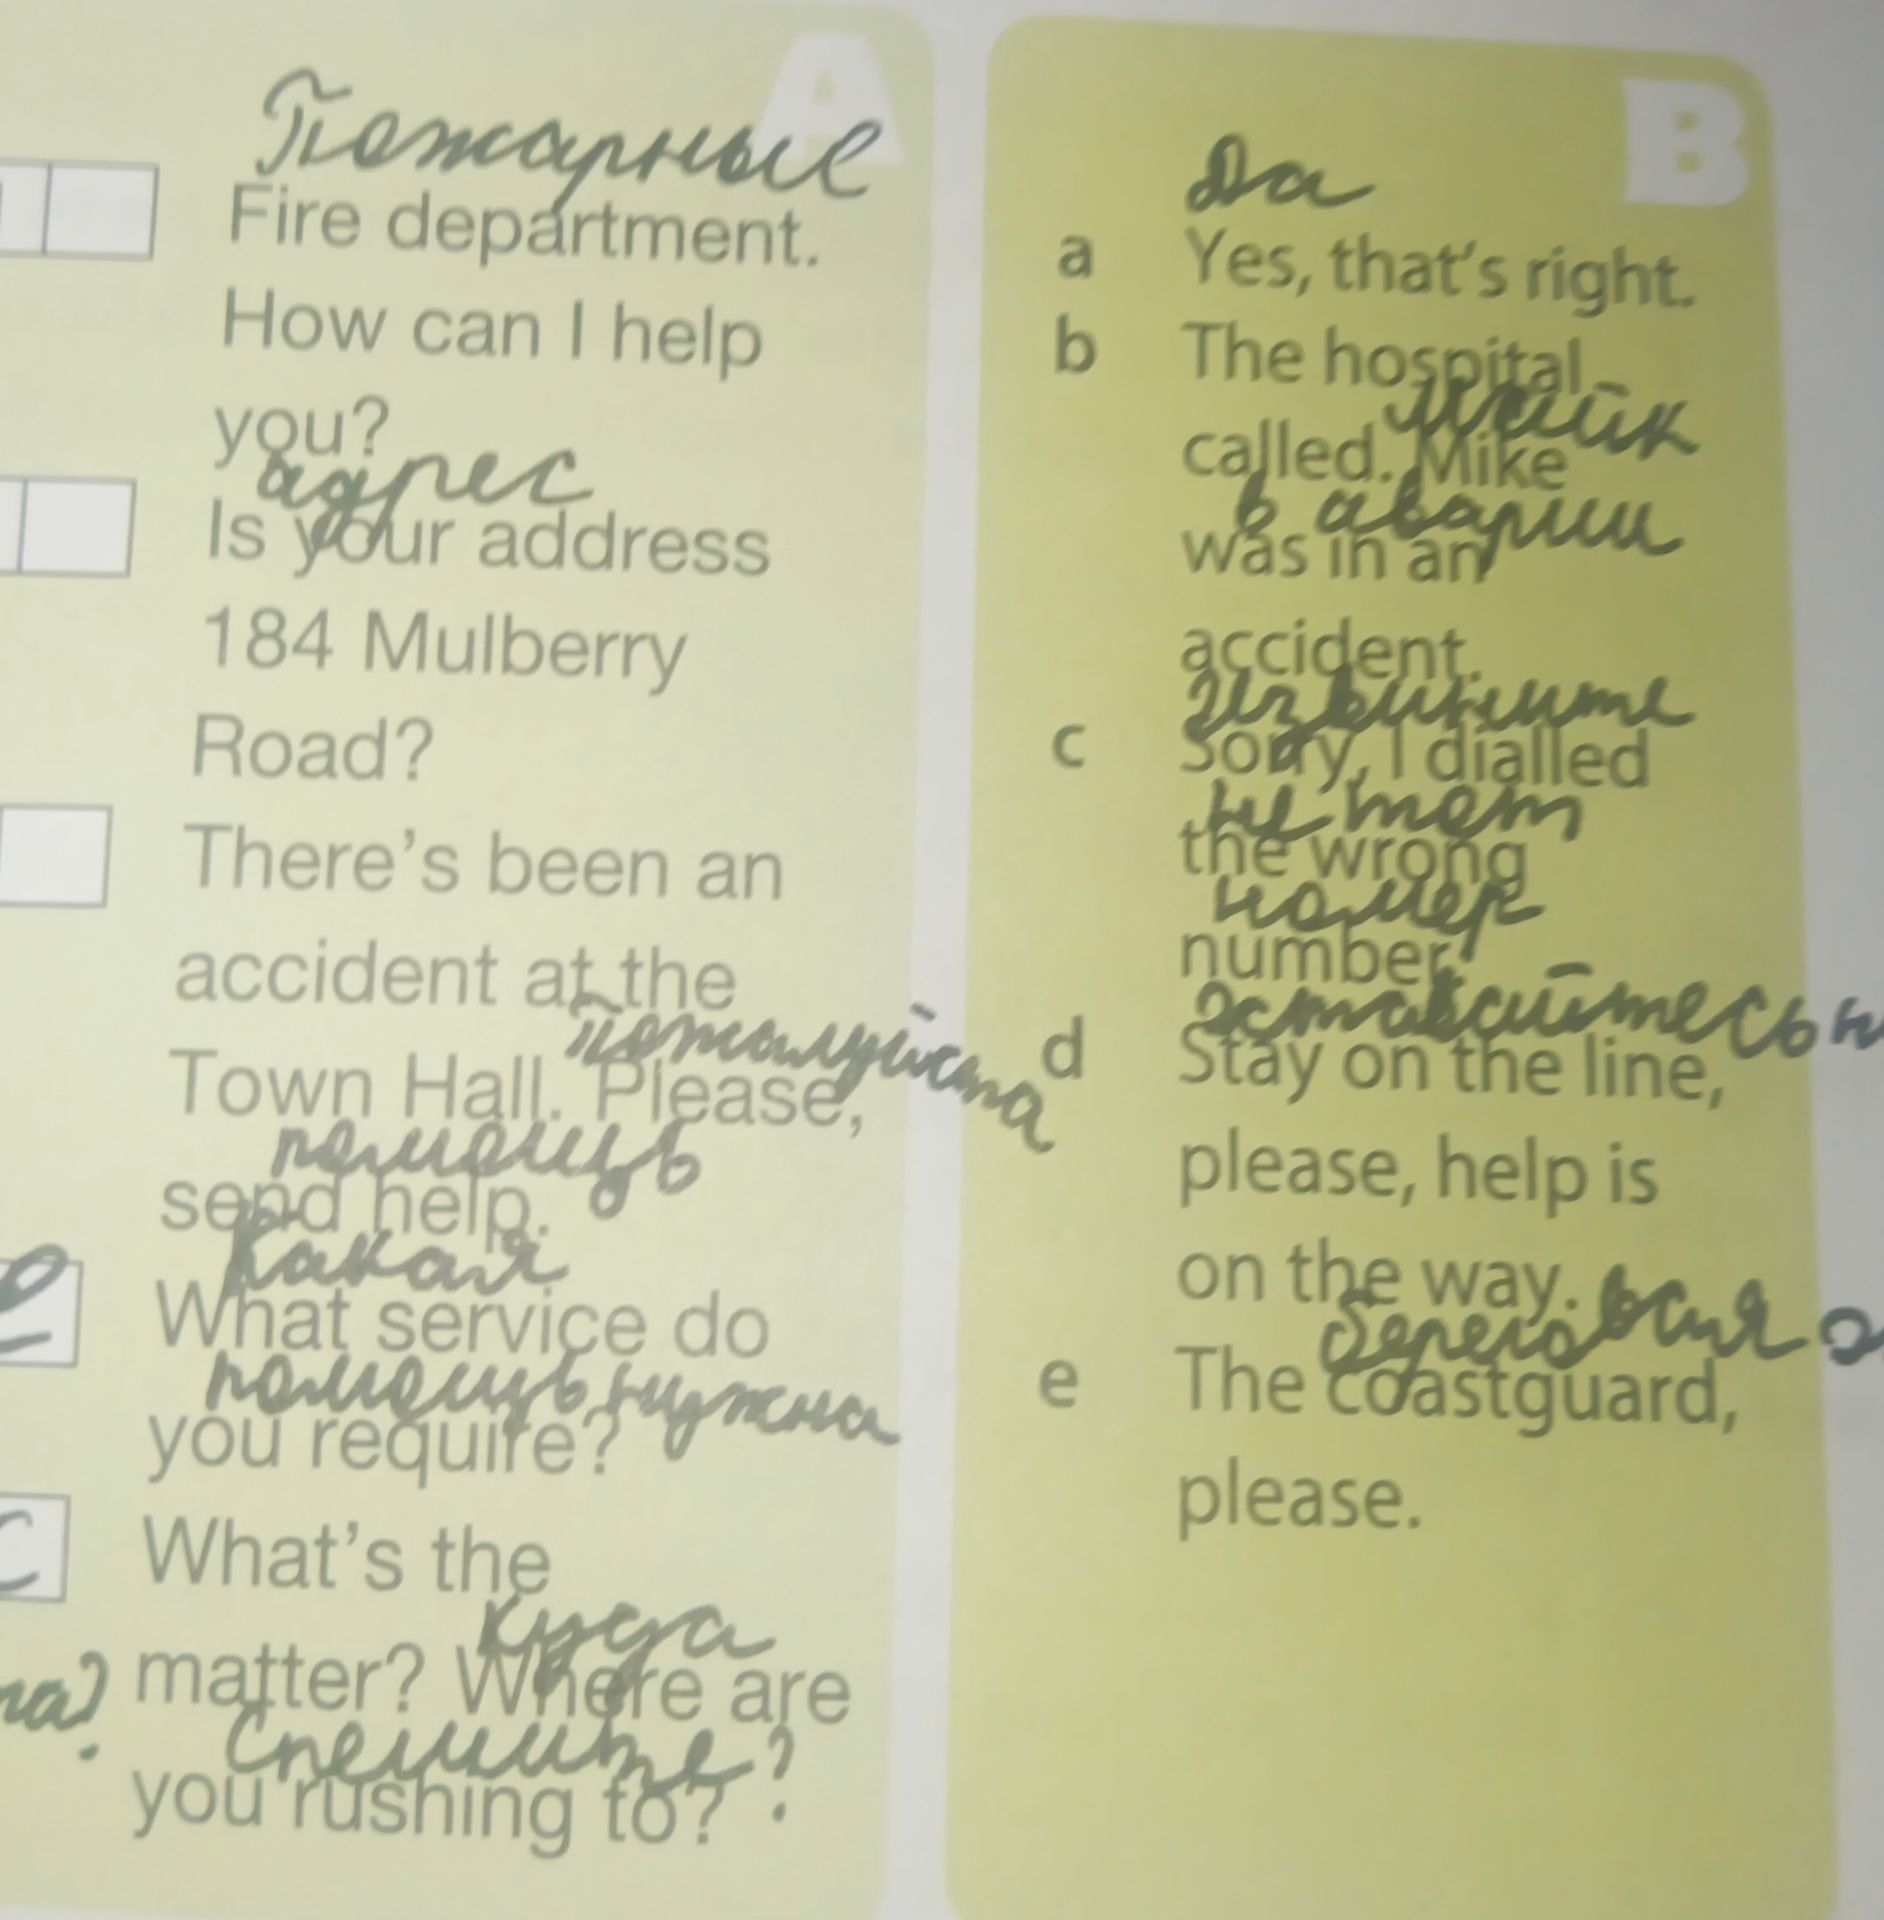 A
Пожарные
Fire department.
How can I help
you?
адрес
Is your address
184 Mulberry
Road?
There's been an
accident at the
Town Hall. Please,
пожалуйста
помощь
send help.
Какая
e
What service do
помощь нужна
you require?
c
What's the
куда
matter? Where are
спешите?
you rushing to?
B
Да
a Yes, that's right.
b The hospital
Майк
called. Mike
в аварии
was in an
accident.
Извините
c Sorry, I dialled
не тот
the wrong
номер
number.
оставайтесь
d Stay on the line,
please, help is
on the way.
береговая
e The coastguard,
please.